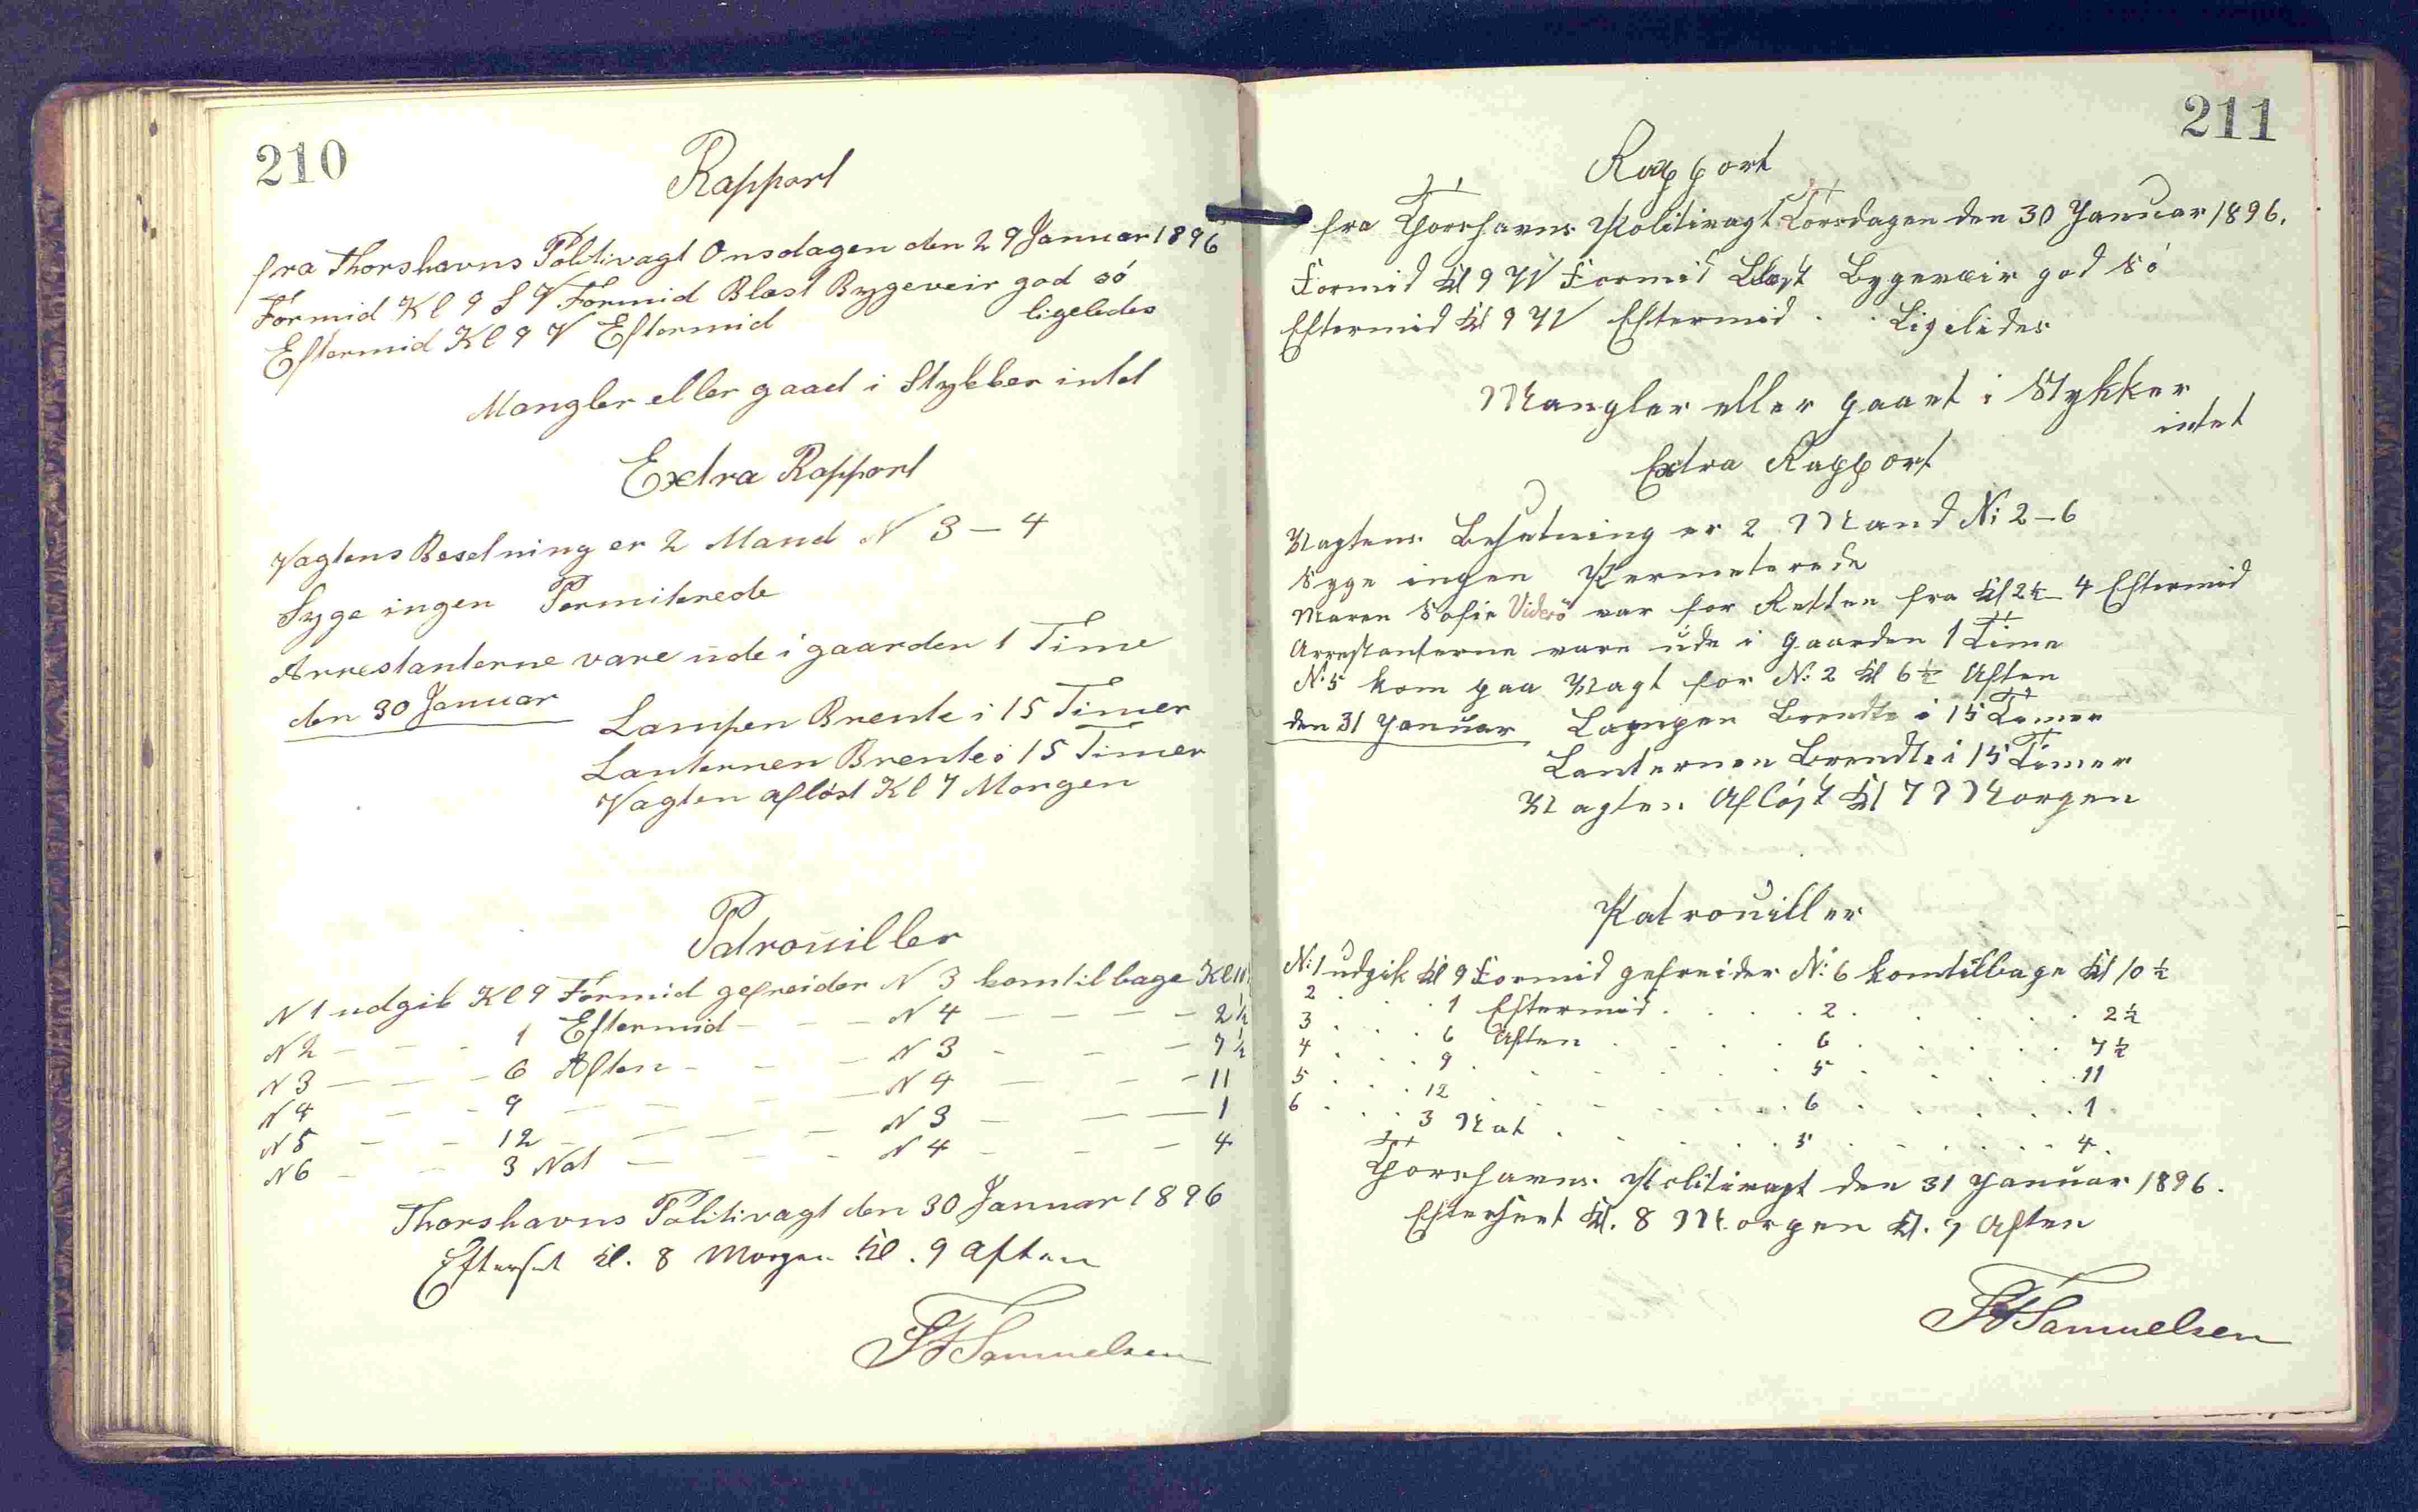 210
Rapport
fra Thorshavns Politivagt Onsdagen den 29 Januar 1896
Formid Kl 9 S V Formid Blæst Bygeveir god só
Eftermid Kl 9 V Eftermid ligeledes
Mangler eller gaaet i Stykker intet
Extra Rapport
Vagtens Besetning er 2 Mand N 3 – 4
Syge ingen Permiterede
Arrestanterne vare ude i gaarden 1 Time
den 30 Januar Lampen Brente i 15 Timer
Lanternen Brente i 15 Timer
Vagten aflöst Kl 7 Morgen
Patrouiller
N 1 udgik Kl 9 Formid gefreider N 3 kom tilbage Kl
N 2 – – - 1 Eftermid – – – N 4 – – – – 2½
N 3 – – – 6 Aften – – – N 3 – – – 7½
N 4 – - 9 – – – – N 4 – – – 11
N 5 – – 12 – – – – N 3 – – – 1
N 6 – – 3 Nat – – – N 4 – – – 4
Thorshavns Politivagt den 30 Januar 1896
Efterset Kl. 8 Morgen Kl. 9 Aften
Samuelsen
211
Rapport
fra Thorshavns Politivagt Torsdagen den 30 Januar 1896.
Formid Kl 9 W Formid Blæst Bygevæir god Só
Eftermid Kl 9 W Eftermid . . Ligelides
Mangler eller gaaet i Stykker
intet
Extra Rapport
Vagtens Besetning er 2 Mand N: 2 – 6
Syge ingen Permeterede
Maren Sofie Viderö var for Retten fra Kl 2½ – 4 Eftermid
Arrestanterne vare ude i Gaarden 1 Time
N: 5 kom paa Vagt for N: 2 Kl 6½ Aften
den 31 Januar Lampen Brendte i 15 Timer
Lanternen Brendte i 15 Timer
Vagten Aflöst Kl 7 Morgen
Patrouiller
N: 1 udgik Kl 9 Formid gefreider N: 6 kom tilbage Kl 10½
2 . . . 1 Eftermid . . . . 2 . . . . . . 2½
3 . . . 6 Aften . . . . 6 . . . . . . 7½
4 . . . 9 . . . . . . 5 . . . . . 11
5 . . . 12 . . . . . . 6 . . . . . 1
6 . . . 3 Nat . . . . . 5 . . . . . . 4.
Thorshavns Politivagt den 31 Januar 1896.
Efterseet Kl. 8 Morgen Kl. 9 Aften
Samuelsen